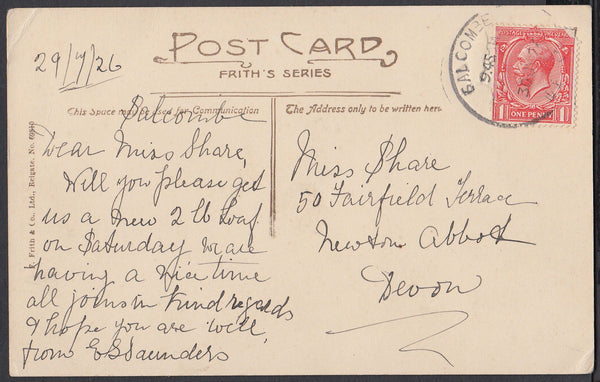 POST CARD
FRITH'S SERIES
29/7/26
This Space may be used for Communication
The Address only to be written here
POSTAGE
ONE PENNY
1 1
Salcombe
Dear Miss Share,
Will you please get
us a new 2 lb Loaf
on Saturday we are
having a nice time
all joins in kind regards
& hope you are well,
from E S Saunders
Miss Share
50 Fairfield Terrace
Newton Abbot
Devon
F. Frith & Co., Ltd., Reigate. No.